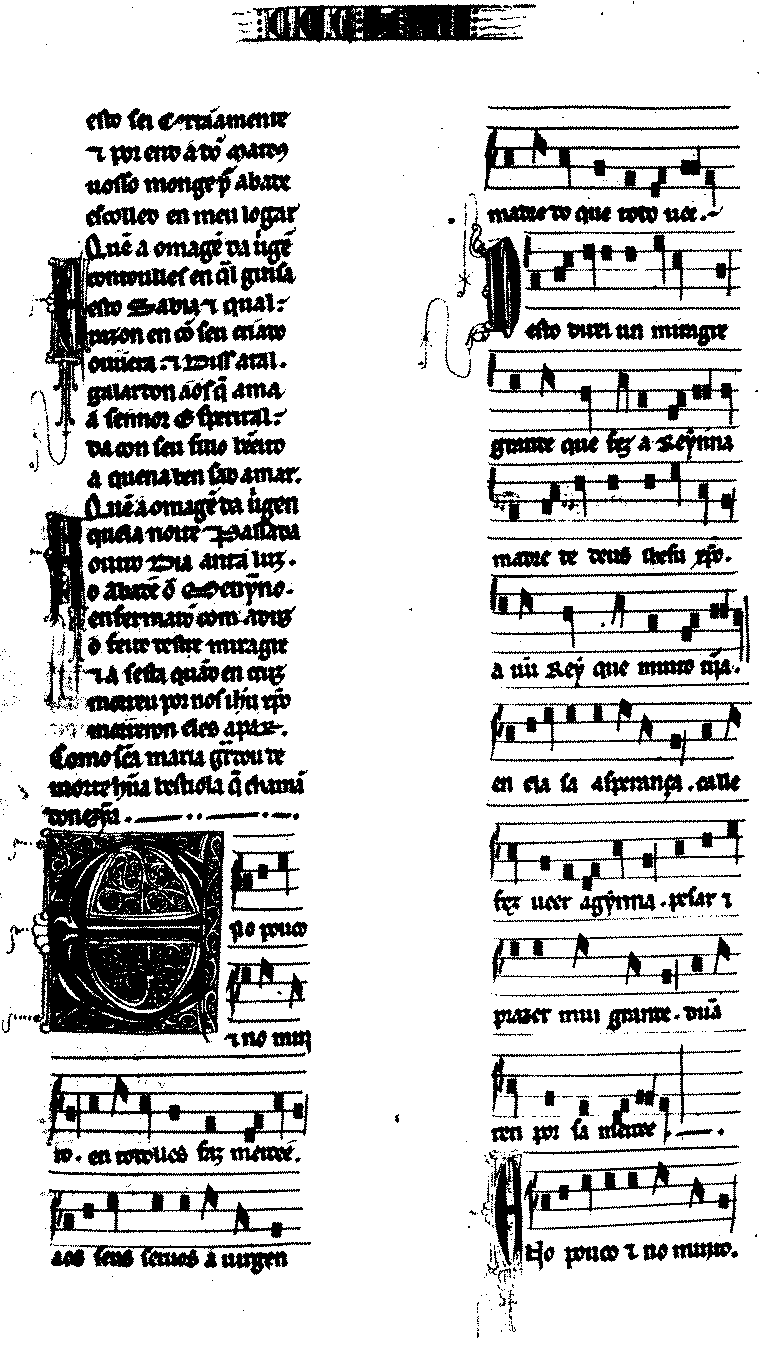 esto sei Certãamente
⁊ por end' á dõ Marcos
uosso monge p̃ Abate
escolled' en meu logar
Quẽ a omagẽ da uirgẽ
comoulles en q̃l guisa
esto Sabia ⁊ qual.
prazon en cõ seu criado
ouuera. ⁊ Diss' atal.
galardon aos q̃ ama
á sennor Espirital.
da con seu fillo bẽeito
a quen a ben sab' amar.
Quẽ a omagẽ da uirgen
quela noite Passada
ouuo Dia ant' a luz.
o Abate d'o
enfermaro com' aduz
o feito deste miragre
⁊ A sesta quãd' en cruz
morreu por nos ih̃u xp̃o
morreron eles a par.
Como sc̃a maria guardou de
morte hũa bestiola q̃ chamã
donezỹa.
Eno pouco
⁊ no mui
to. en todolles faz mercee.
aos seus seruos a uirgen
madre do que todo uee.
Desto direi un miragre
grande que fez a Reynna
madre de deus Ihesu xp̃o.
a un Rey que muito tĩja.
en ela sa asperança. calle
fez ueer agynna. pesar ⁊
prazer mui grande. dũa
ren por sa mercee.
Eno pouco ⁊ no muito.